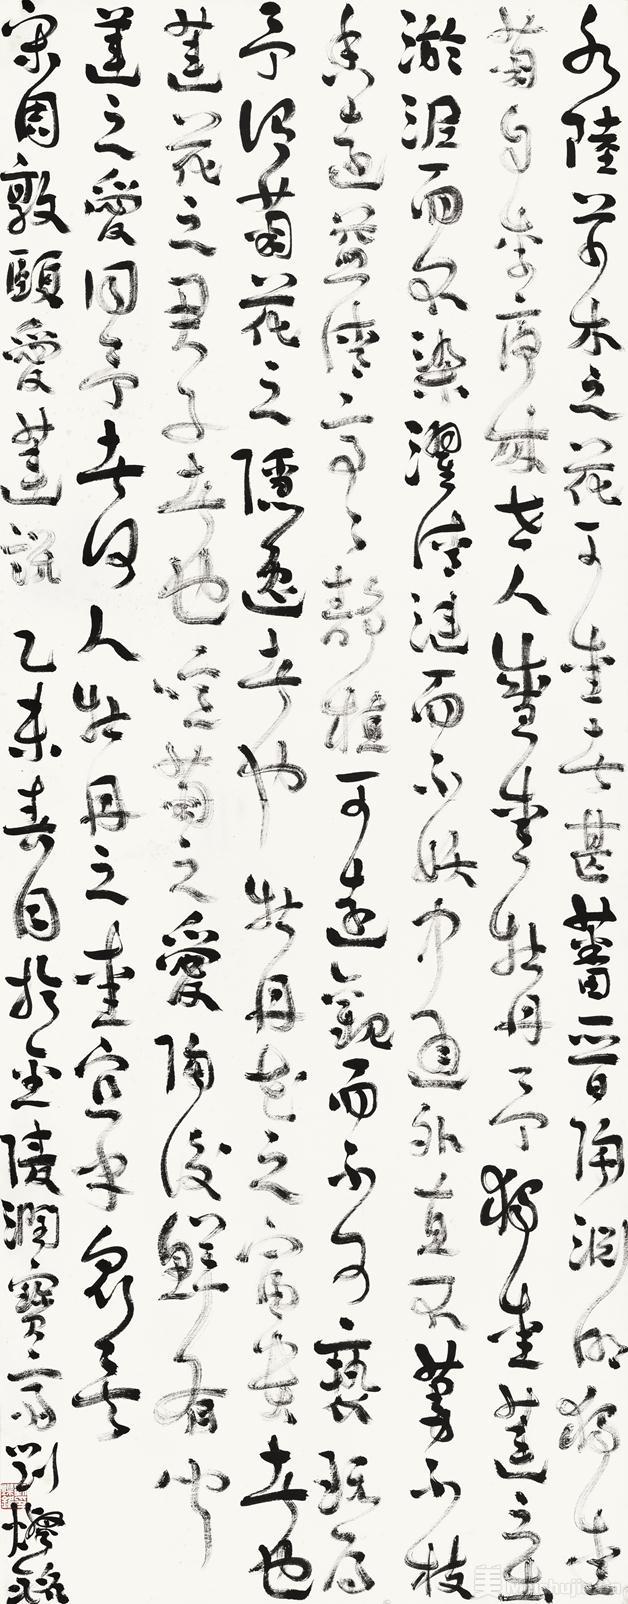 水陸草木之花可愛者甚蕃晉陶淵明獨愛
菊自李唐來世人盛愛牡丹予獨愛蓮之出
淤泥而不染濯清漣而不妖中通外直不蔓不枝
香遠益清亭々靜植可遠觀而不可褻玩焉
予謂菊花之隱逸者也牡丹花之富貴者也
蓮花之君子者也噫菊之愛陶後鮮有聞
蓮之愛同予者何人牡丹之愛宜乎眾矣
宋周敦頤愛蓮說 乙未春月於金陵潤寶齋劉燦銘